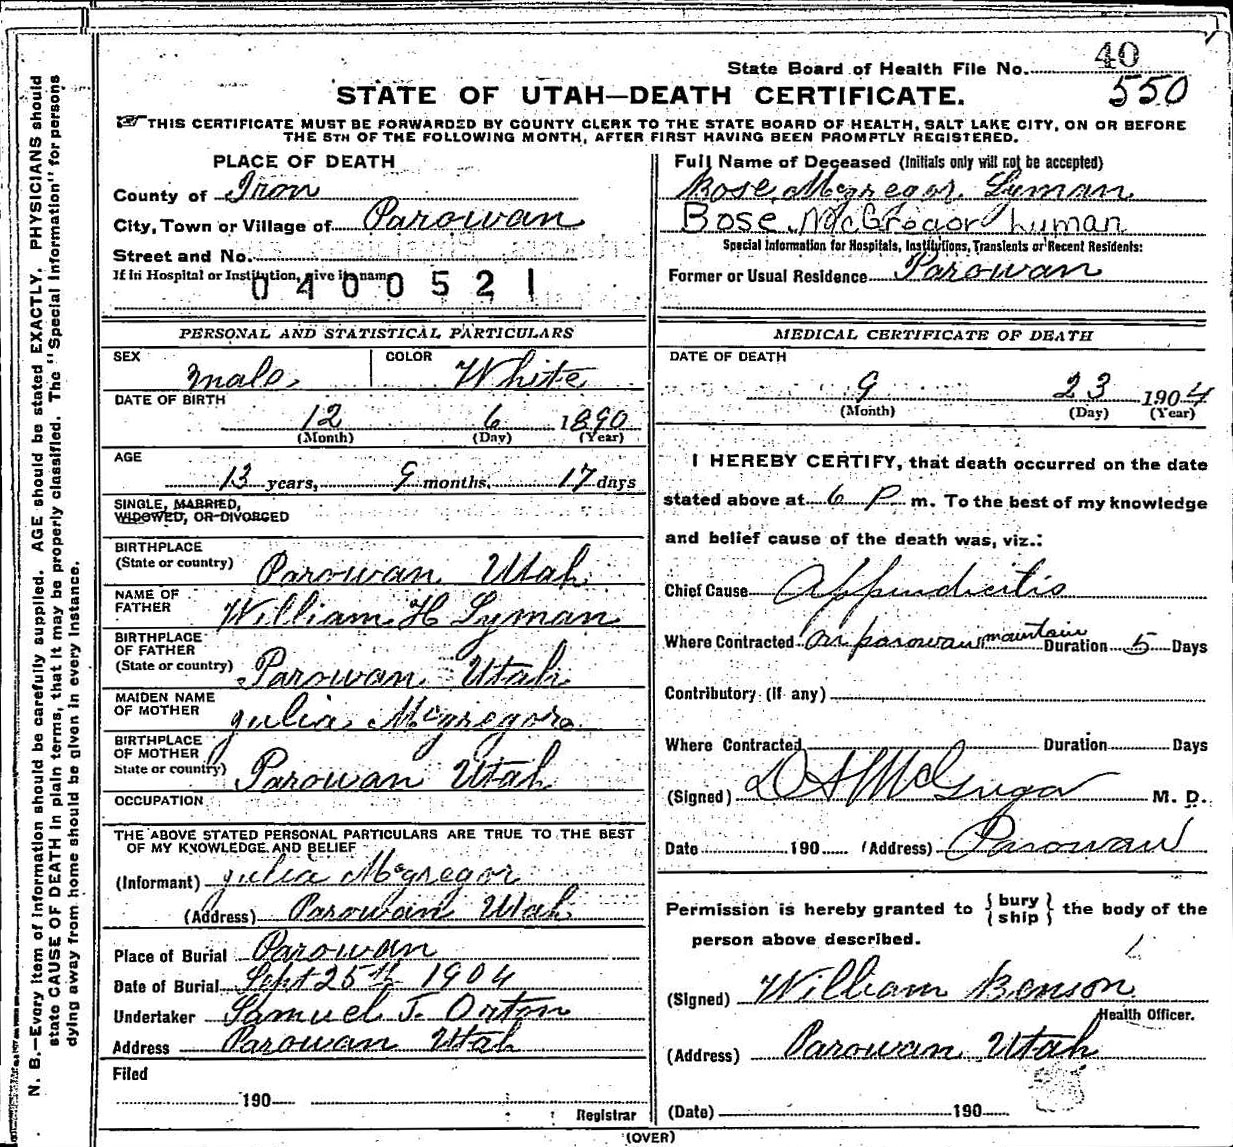 State Board of Health File No. 40
550
STATE OF UTAH—DEATH CERTIFICATE.
☞THIS CERTIFICATE MUST BE FORWARDED BY COUNTY CLERK TO THE STATE BOARD OF HEALTH, SALT LAKE CITY, ON OR BEFORE
THE 5TH OF THE FOLLOWING MONTH, AFTER FIRST HAVING BEEN PROMPTLY REGISTERED.
PLACE OF DEATH
County of Iron
City, Town or Village of Parowan
Street and No.
If in Hospital or Institution, give its name
0400521
Full Name of Deceased (Initials only will not be accepted)
Bose Mcgregor Lyman
Bose McGregor Lyman
Special Information for Hospitals, Institutions, Transients or Recent Residents:
Former or Usual Residence Parowan
PERSONAL AND STATISTICAL PARTICULARS
SEX male COLOR White
DATE OF BIRTH
12 6 1890
(Month) (Day) (Year)
AGE
13 years, 9 months, 17 days
SINGLE, MARRIED,
WIDOWED, OR DIVORCED
BIRTHPLACE
(State or country) Parowan Utah
NAME OF
FATHER William H Lyman
BIRTHPLACE
OF FATHER
(State or country) Parowan Utah
MAIDEN NAME
OF MOTHER Julia Mcgregor
BIRTHPLACE
OF MOTHER
State or country) Parowan Utah
OCCUPATION
THE ABOVE STATED PERSONAL PARTICULARS ARE TRUE TO THE BEST
OF MY KNOWLEDGE AND BELIEF
(Informant) Julia Mcgregor
(Address) Parowan Utah
Place of Burial Parowan
Date of Burial Sept 25th 1904
Undertaker Samuel T. Orton
Address Parowan Utah
Filed
190
Registrar
MEDICAL CERTIFICATE OF DEATH
DATE OF DEATH
9 23 1904
(Month) (Day) (Year)
I HEREBY CERTIFY, that death occurred on the date
stated above at 6 P m. To the best of my knowledge
and belief cause of the death was, viz.:
Chief Cause Appendicitis
Where Contracted On parowan mountain Duration 5 Days
Contributory (if any)
Where Contracted Duration Days
(Signed) M. D.
Date 190 (Address) Parowan
Permission is hereby granted to {bury
ship} the body of the
person above described.
(Signed) William Benson
Health Officer.
(Address) Parowan Utah
(Date) 190
(OVER)
N. B.—Every item of information should be carefully supplied. AGE should be stated EXACTLY. PHYSICIANS should
state CAUSE OF DEATH in plain terms, that it may be properly classified. The "Special Information" for persons
dying away from home should be given in every instance.